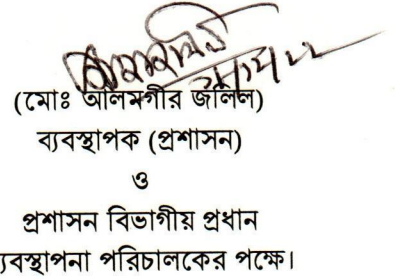 (মোঃ আলমগীর জলিল)
ব্যবস্থাপক (প্রশাসন)
ও
প্রশাসন বিভাগীয় প্রধান
্যবস্থাপনা পরিচালকের পক্ষে।